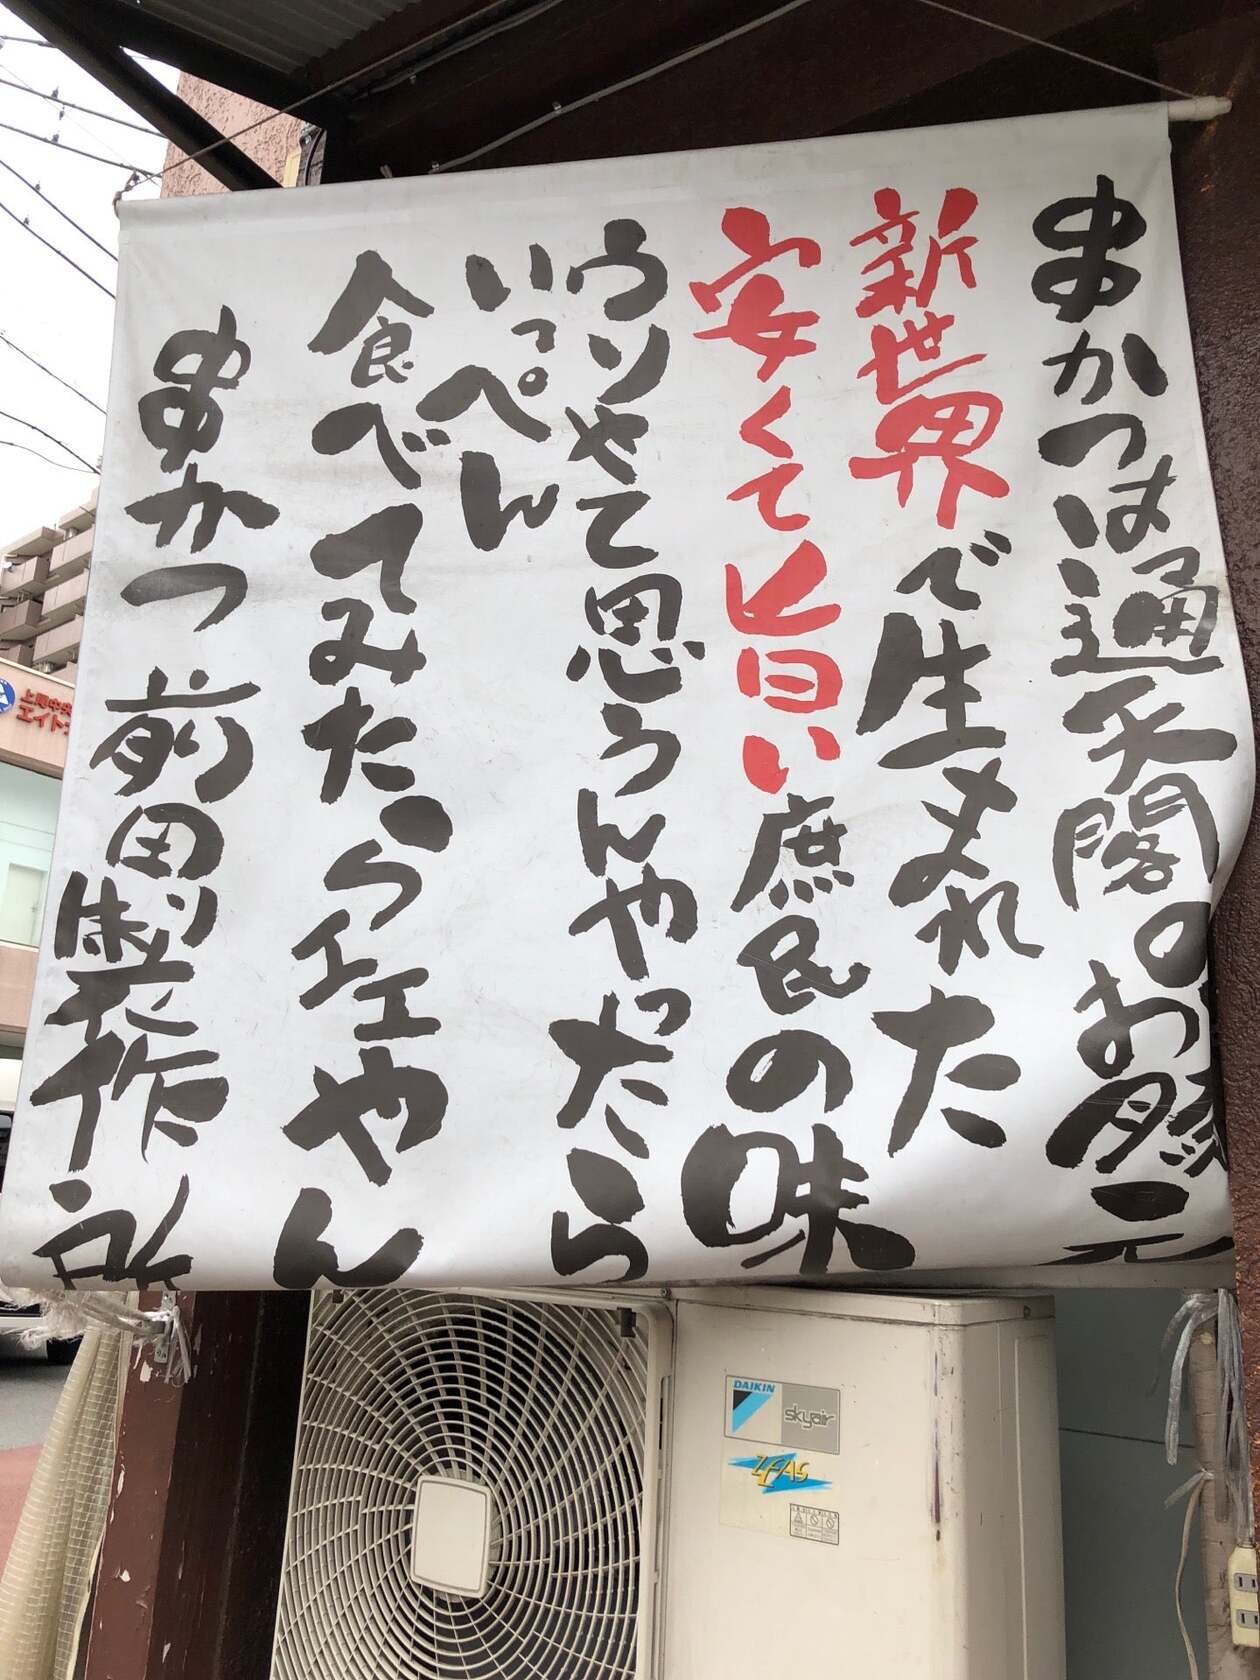 串かつは通天閣のお膝元
新世界で生まれた
安くて旨い庶民の味
ウソやて思うんやったら
いっぺん
食べてみたらエエやん
串かつ 前田製作所
上尾中央
エイト
DAIKIN
skyair
ZEAS